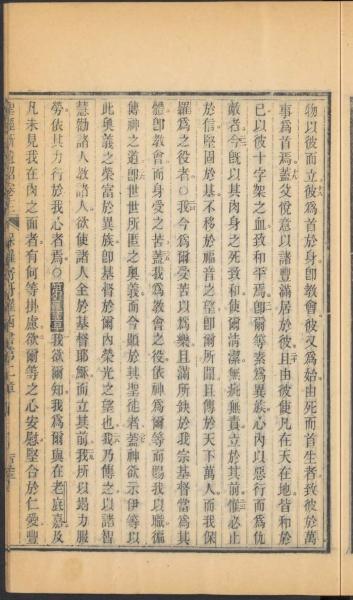 物以彼而立彼爲首於身卽教會彼又爲始由死而首生者致彼於萬
事爲首焉蓋父悅意以諸豐滿居於彼且由彼使凡在天在地皆和於
已以彼十字架之血致和平焉卽爾等素爲異族心內以惡行而爲仇
敵者今旣以其肉身之死致和使爾清潔無疵無責立於其前惟必止
於信堅固於基不移於福音之望卽爾所聞且傳於天下萬人而我保
羅爲之役者○我今爲爾受苦以爲樂且滿所缺於我宗基督當爲其
體卽教會而身受之苦蓋我爲教會之役依神爲爾等而賜我以職徧
傳神之道卽世世所匿之奧義而今顯於其聖徒者蓋神欲示伊等以
此奧義之榮富於異族卽基督於爾內榮光之望也我乃傳之以諸智
慧勸諸人教諸人欲使諸人全於基督耶穌而立其前我所以竭力服
勞依其力行於我心者焉○
我欲爾知我爲爾與在老底嘉及
凡未見我在肉之面者有何等掛慮欲爾等之心安慰堅合於仁愛豐